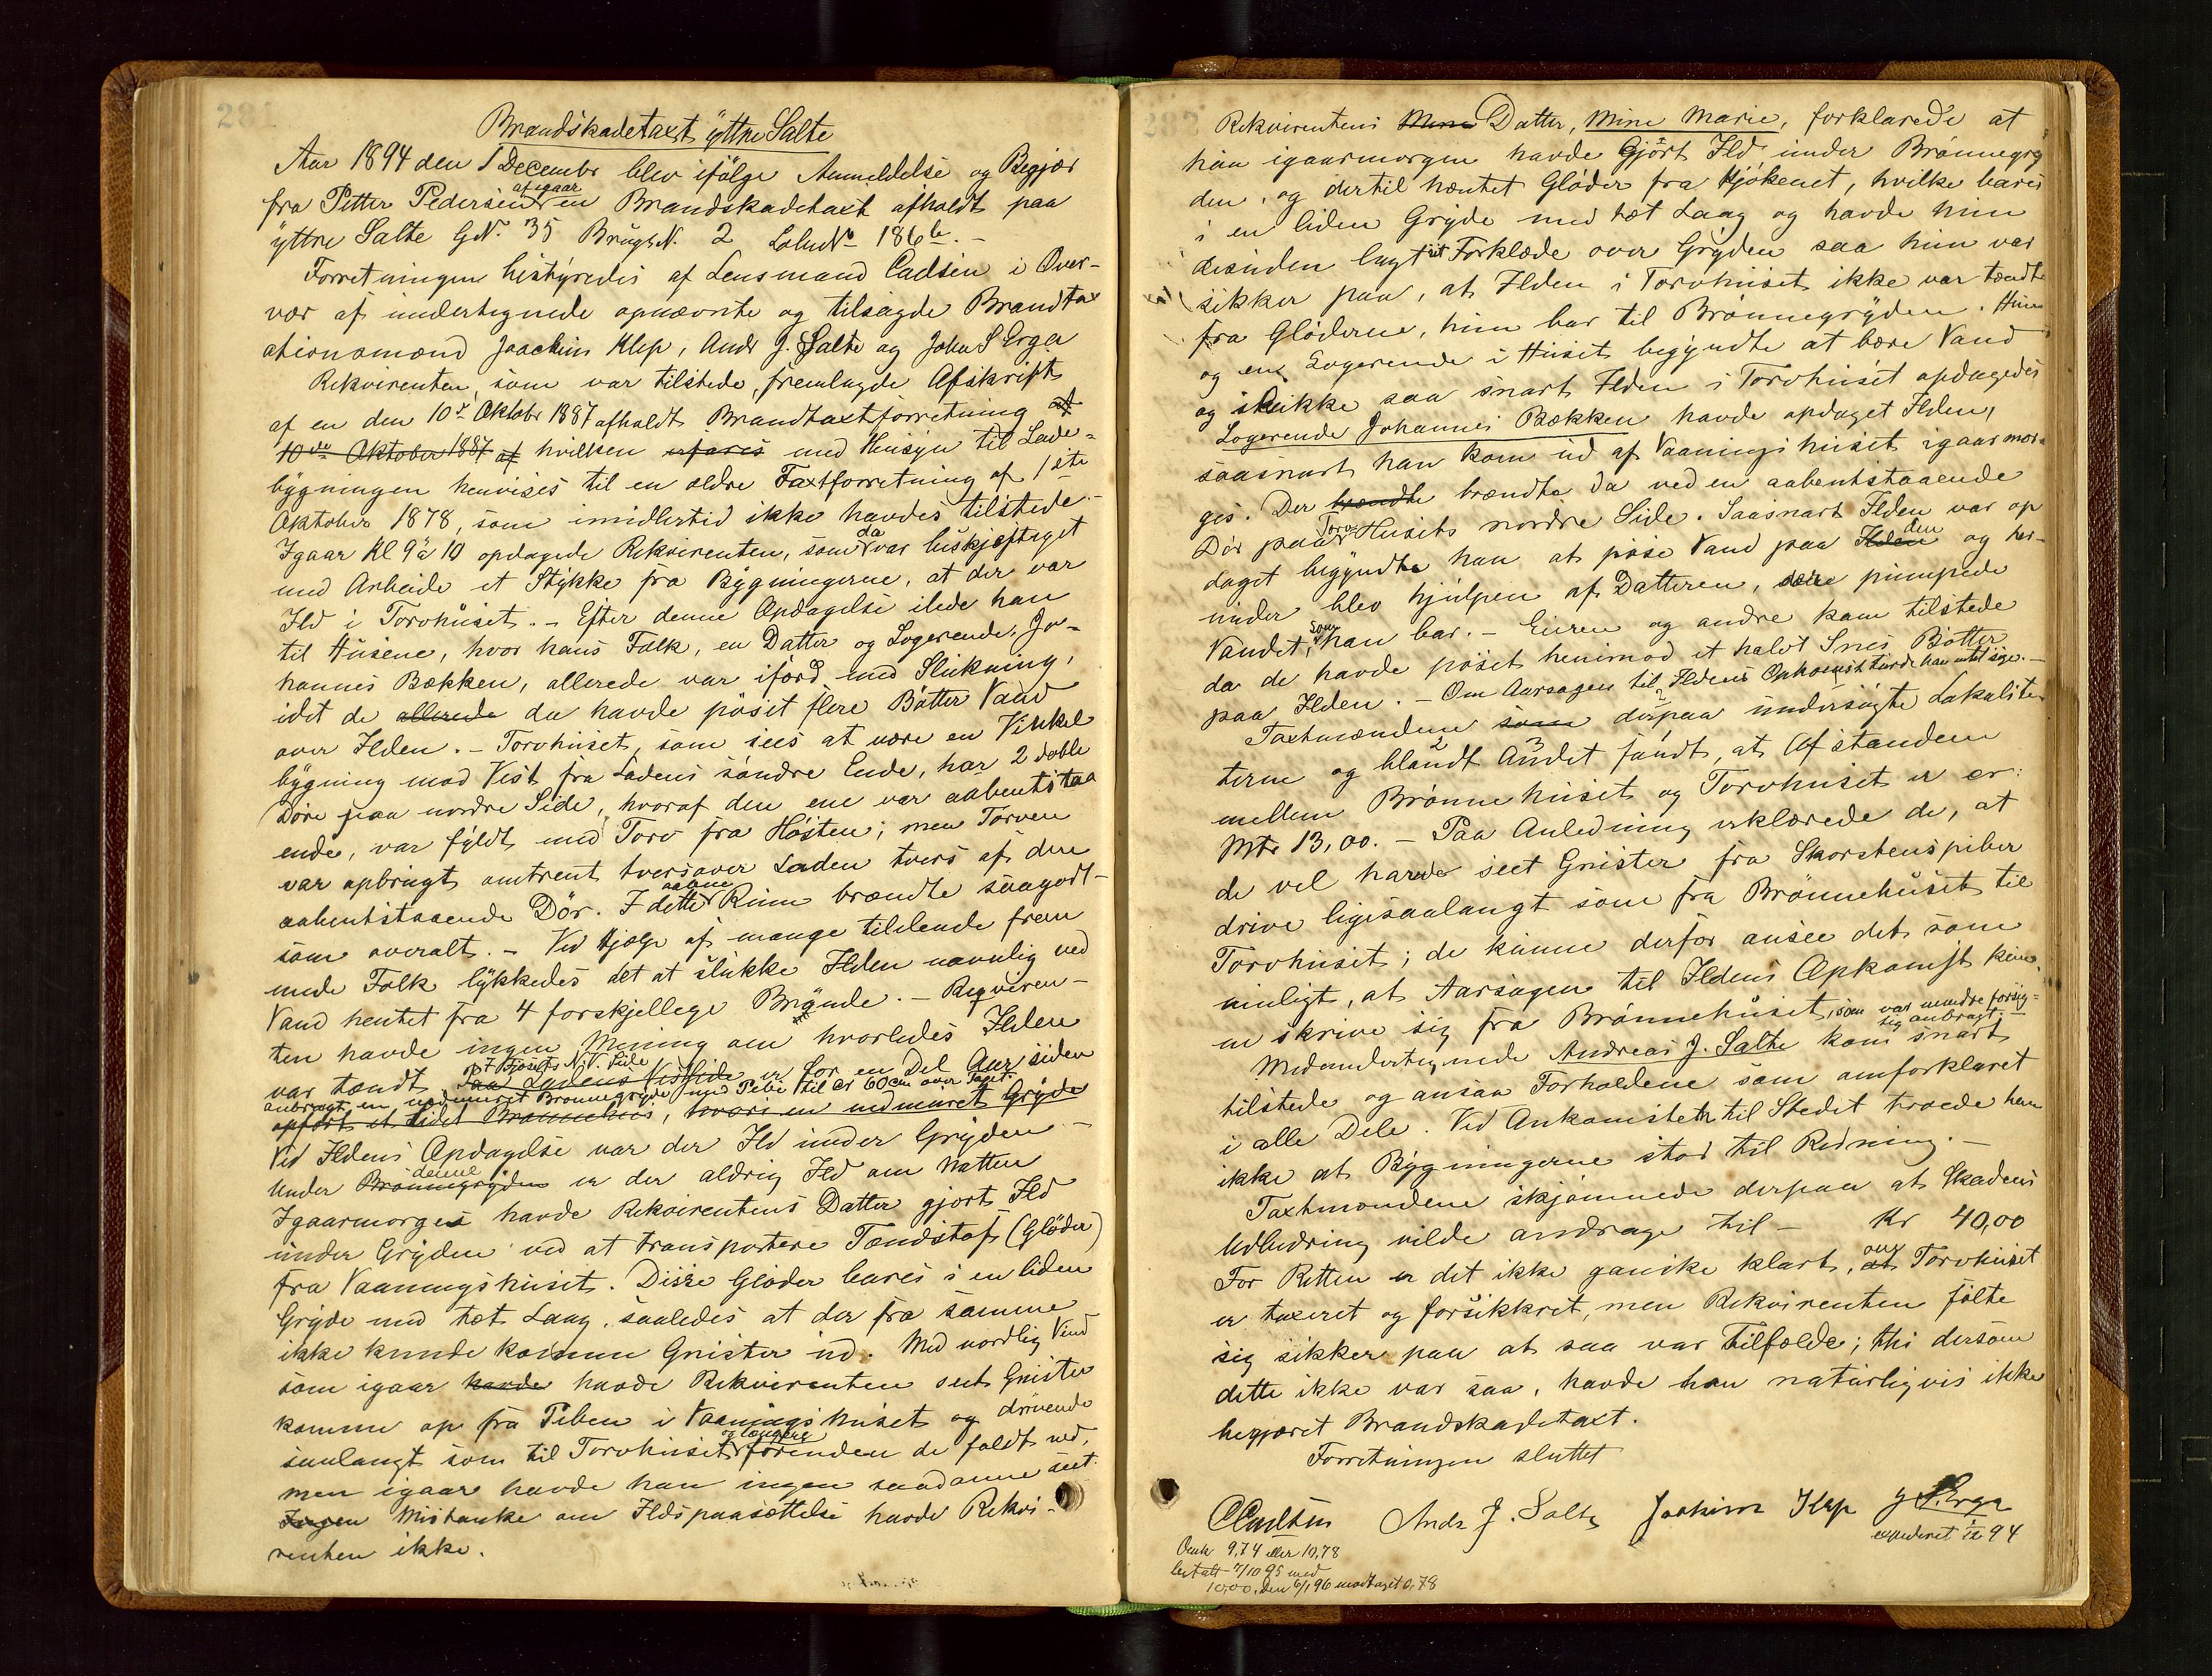 Brandskadetaxt yttre Salte
Aar 1894 den 1 Decembr blev ifølge Anmeldelse og Begjær
fra Petter Pedersen af igaar en Brandskadetaxt afholdt paa
yttre Salte GN. 35 BrugsN. 2 LøbeN 186 b. -
Forretningen bestyredes af Lensmand Carlsen i Over-
vær af undertegnede opnævnte og tilsagde Brandtax
ationsmænd Joachim Klep, Andr J. Salte og John S Erga
Rekvirenten, som var tilstede, fremlagde Afskrift
af en den 10de Oktobr 1887 afholdt Brandtaxtforretning af
10de Oktober 1887 af hvilken erfares med Hensyn til Lade-
bygningen henvises til en ældre Taxtforretning af 1ste
Oktober 1878, som imidlertid ikke havdes tilstede.-
Igaar Kl 9 à 10 opdagede Rekvirenten, som da var beskjæftiget
med Arbeide et Stykke fra Bygningerne, at der var
Ild i Torvhuset. - Efter denne Opdagelse ilede han
til Husene, hvor hans Folk, en Datter og Logerende, Jo-
hannes Bækken, allerede var ifærd med Slukning,
idet de allerede da havde pøset flere Bøtter Vand
over Ilden. - Torvhuset, som sees at være en Vinkel
bygning mod Vest fra Ladens søndre Ende, har 2 doble
Døre paa nordre Side, hvoraf den ene var aabentstaa
ende, var fyldt med Torv fra Høsten; men Torven
var opbrugt omtrent tversover Laden tvers af den
aabentstaaende Dør. I dette aabne Rum brændte saagodt-
som overalt. - Ved Hjælp af mange tililende frem
mede Folk lykkedes det at slukke Ilden navnlig ved
Vand hentet fra 4 forskjellege Brønde. - Reqviren-
ten havde ingen Mening om hvorledes Ilden
var tændt. I Fjøsets N.V. Side Paa Ladens Vestside er for en Del Aar siden
anbragt en nedmuret Brønnegryde med Pibe til Ca 60 cm over Taget.
opført et lidet Brønnehus, hvori en nedmuret Gryde
Ved Ildens Opdagelse var der Ild under Gryden -
Under denne Brønnegryden er der aldrig Ild om Natten
Igaarmorges havde Rekvirentens Datter gjort Ild
under Gryden ved at transportere Tændstof (Gløder)
fra Vaaningshuset. Disse Gløder bares i en liden
Gryde med tæt Laag, saaledes at der fra samme
ikke kunde komme Gnister ud. Med nordlig Vind
som igaar havde havde Rekvirenten seet Gnister
komme op fra Piben i Vaaningshuset og drivende
saalangt som til Torvhuset og længere førenden de faldt ned,
men igaar havde han ingen saadanne seet.
Ingen Mistanke om Ildspaasættelse havde Rekvi-
renten ikke.
Rekvirentens Mine Datter, Mine Marie, forklarede at
hun igaarmorgen havde gjørt Ild under Brønnegry
den, og dertil hentet Gløder fra Kjøkenet, hvilke bares
i en liden Gryde med tæt Laag og havde hun
desuden lagt sit Forklæde over Gryden saa hun var
sikker paa, at Ilden i Torvhuset ikke var tændt
fra Gløderne, hun bar til Brønnegryden. Hun
og en Logerende i Huset begyndte at bære Vand
og slukke saa snart Ilden i Torvhuset opdagedes
Logerende Johannes Bækken havde opdaget Ilden,
saasnart han kom ud af Vaaningshuset igaarmor-
ges. Der brændte brændte da ved en aabentstaaende
Dør paa Torv Husets nordre Side. Saasnart Ilden var op
daget begyndte han at pøse Vand paa Ilden den og her-
under blev hjulpen af Datteren, der pumpede
Vandet, som han bar. - Eieren og andre kom tilstede
da de havde pøset henimod et halvt Snes Bøtter
paa Ilden. - Om Aarsagen til Ildens Opkomst turde han intet sige. -
Taxtmændene som derpaa undersøgte Lokalite-
terne og blandt Andet fandt, at Afstanden
mellem Brønnehuset og Torvhuset er er:
Mtr 13,00. - Paa Anledning erklærede de, at
de vel havde seet Gnister fra Skorstenspiber
drive ligesaalangt som fra Brønnehuset til
Torvhuset; de kunne derfor ansee det som
muligt, at Aarsagen til Ildens Opkomst kun-
ne skrive sig fra Brønnehuset, som var mindre forsig-
tig anbragt.-
Medundertegnede Andreas J. Salte kom snart
tilstede og ansaa Forholdene som omforklaret
i alle Dele. Ved Ankomsten til Stedet troede han
ikke at Bygningerne stod til Redning. -
Taxtmændene skjønnede derpaa at Skadens
Udbedring vilde andrage til - Kr 40,00
For Retten er det ikke ganske klart, om at Torvhuset
er taxeret og forsikkret, men Rekvirenten følte
sig sikker paa at saa var Tilfælde; thi dersom
dette ikke var saa, havde han naturligvis ikke
begjæret Brandskadetaxt.
Forretningen sluttet
CCarlsen Andr J. Salte Joakim Klep J S. Erga
94
9,74 eller 10,78
betalt 7/10 95 med
10,00, den 6/1 96 modtaget 0,78